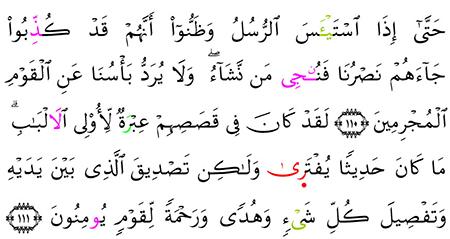 حَتَّىٰٓ إِذَا ٱسْتَيْـَٔسَ ٱلرُّسُلُ وَظَنُّوٓا۟ أَنَّهُمْ قَدْ كُذِّبُوا۟
جَآءَهُمْ نَصْرُنَا فَنُۨجِى مَن نَّشَآءُ ۖ وَلَا يُرَدُّ بَأْسُنَا عَنِ ٱلْقَوْمِ
ٱلْمُجْرِمِينَ ١١٠ لَقَدْ كَانَ فِى قَصَصِهِمْ عِبْرَةٌ لِّأُو۟لِى ٱلَالْبَٰبِ ۗ
مَا كَانَ حَدِيثًا يُفْتَرىٰ وَلَٰكِن تَصْدِيقَ ٱلَّذِى بَيْنَ يَدَيْهِ
وَتَفْصِيلَ كُلِّ شَىْءٍ وَهُدًى وَرَحْمَةً لِّقَوْمٍ يُومِنُونَ ١١١